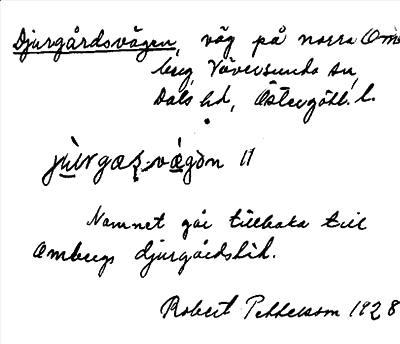 Djurgårdsvägen, väg på norra Om-
berg, Väversunda sn,
Dals hd, Östergötl. l.
jùrgaʂvǽgən 11
Namnet går tillbaka till
Ombergs djurgårdstid.
Robert Pettersson 1928